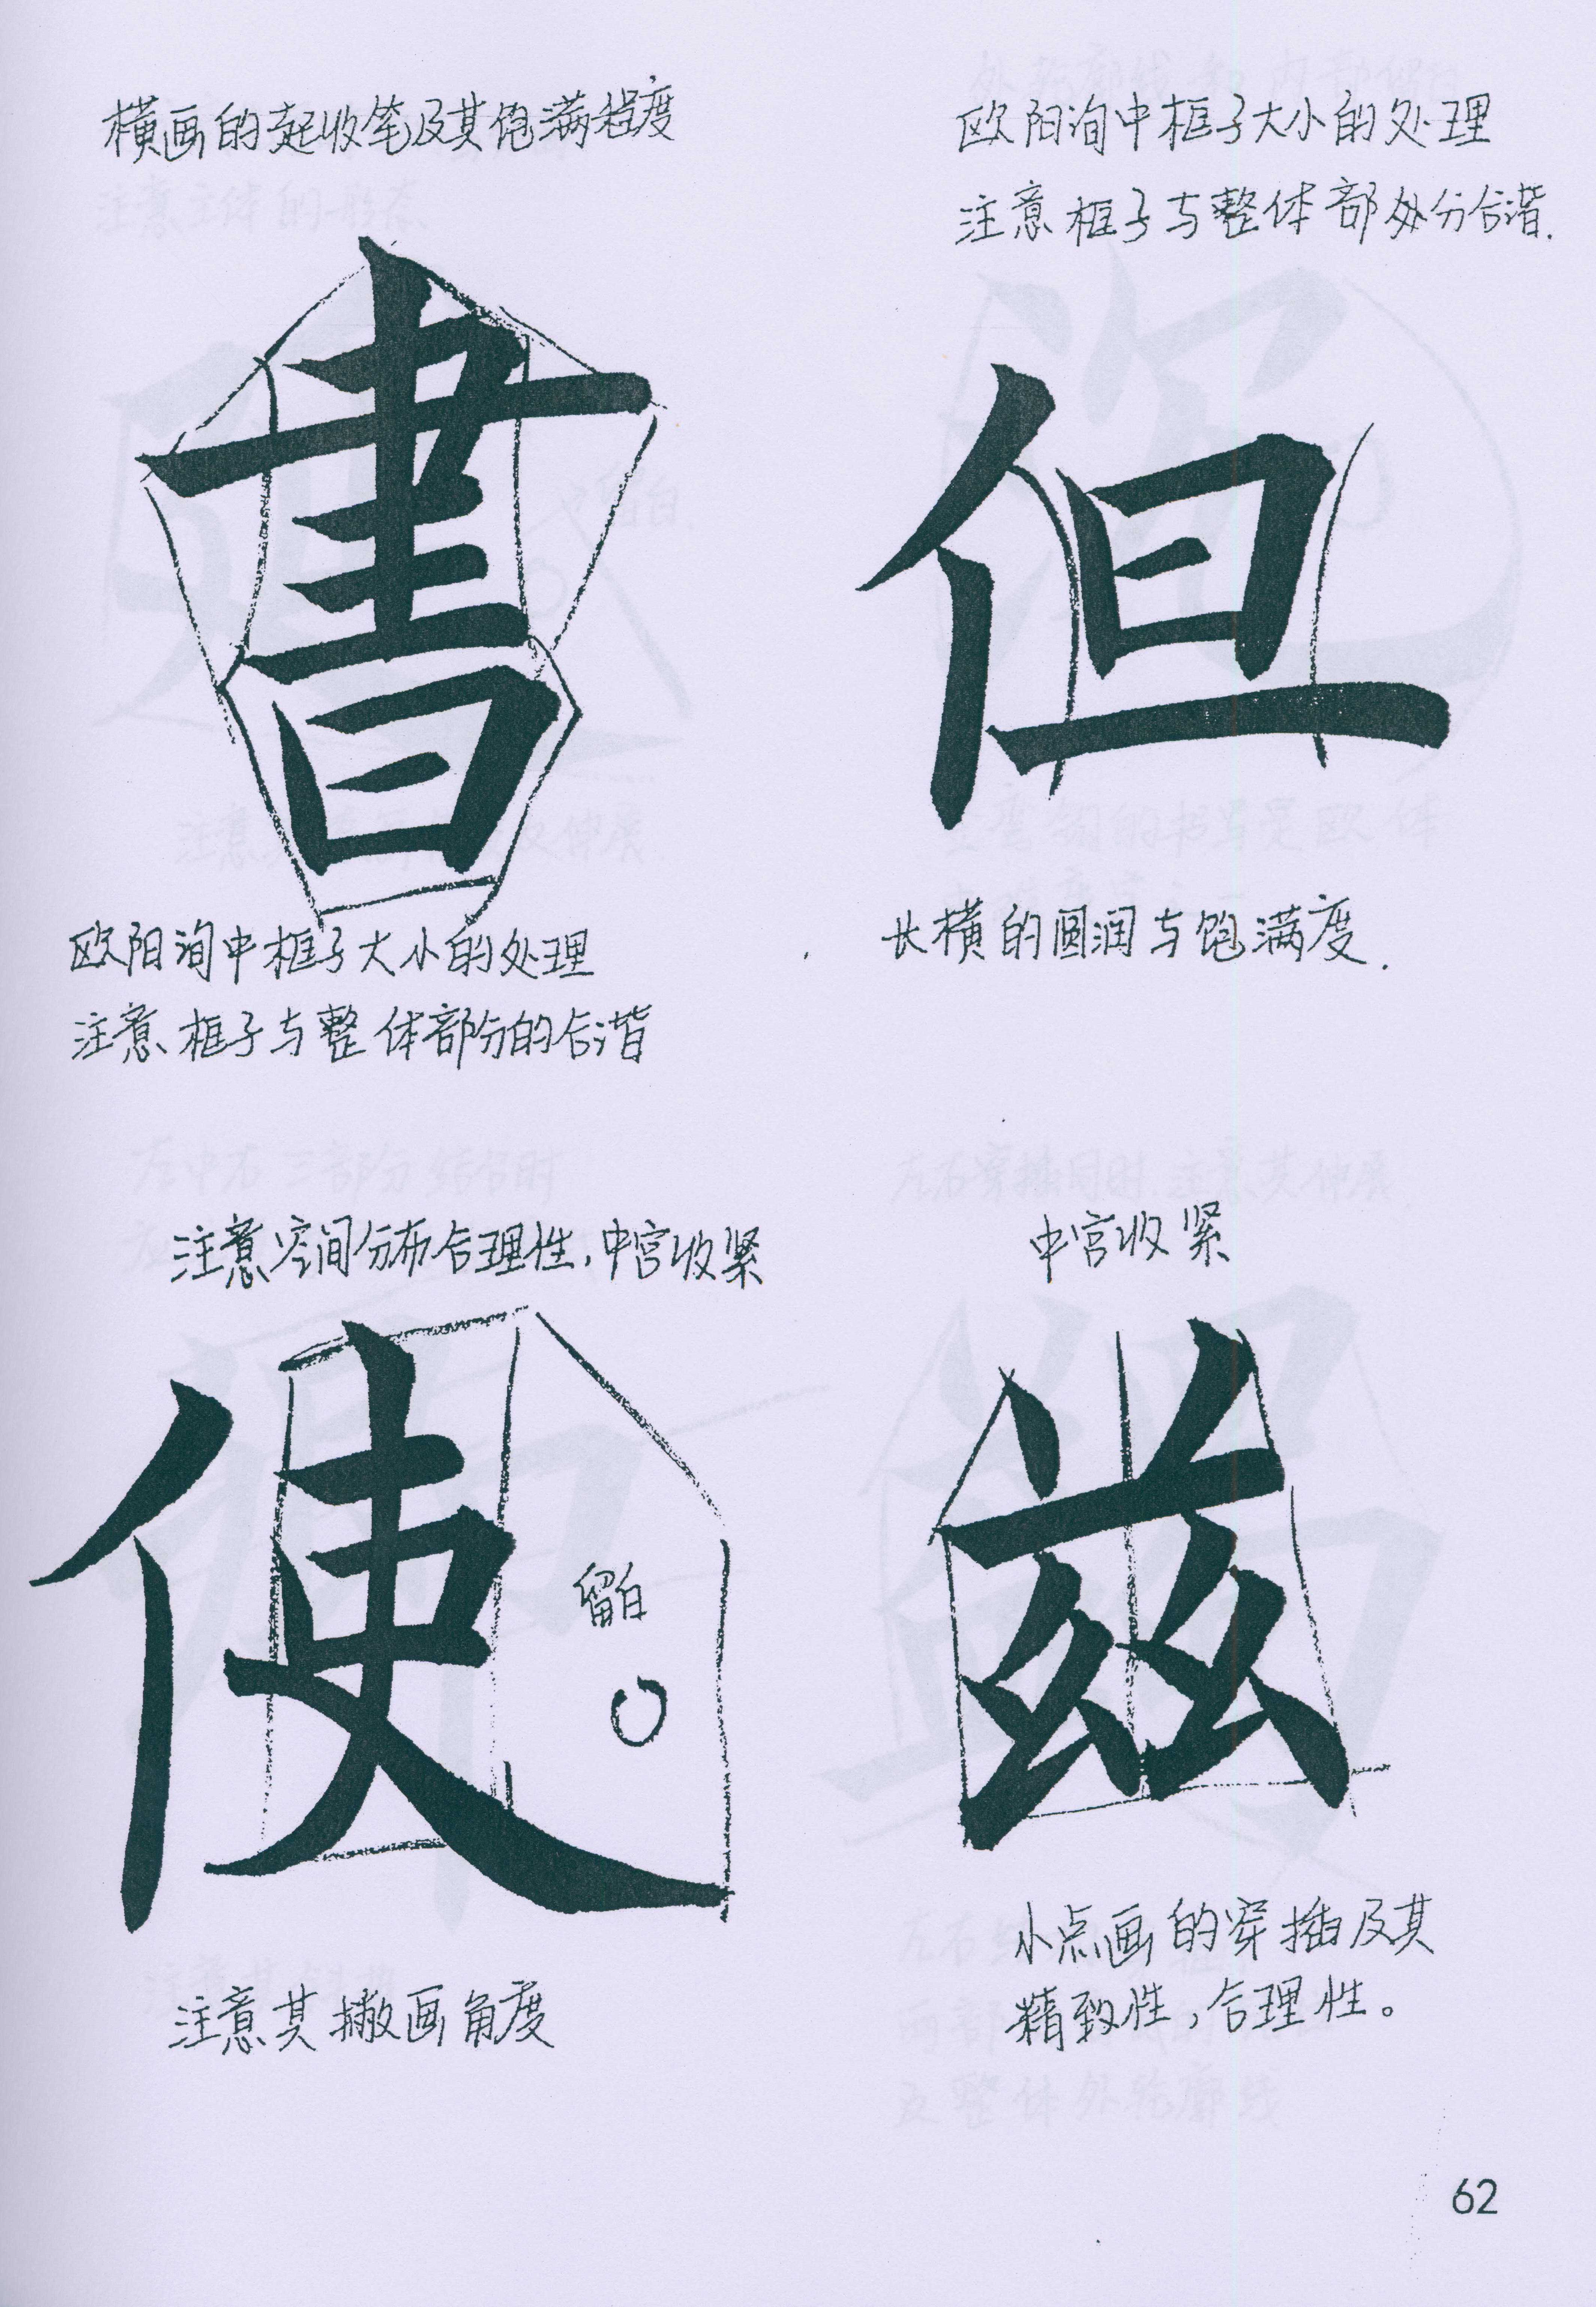 横画的起收笔及其饱满程度
書
欧阳洵中框子大小的处理
注意框子与整体部份的合谐
欧阳洵中框子大小的处理
注意框子与整体部处分合谐.
但
长横的圆润与饱满度.
注意空间分布合理性,中宫收紧
使
留白
注意其撇画角度
中宫收紧
兹
小点画的穿插及其
精致性,合理性。
62